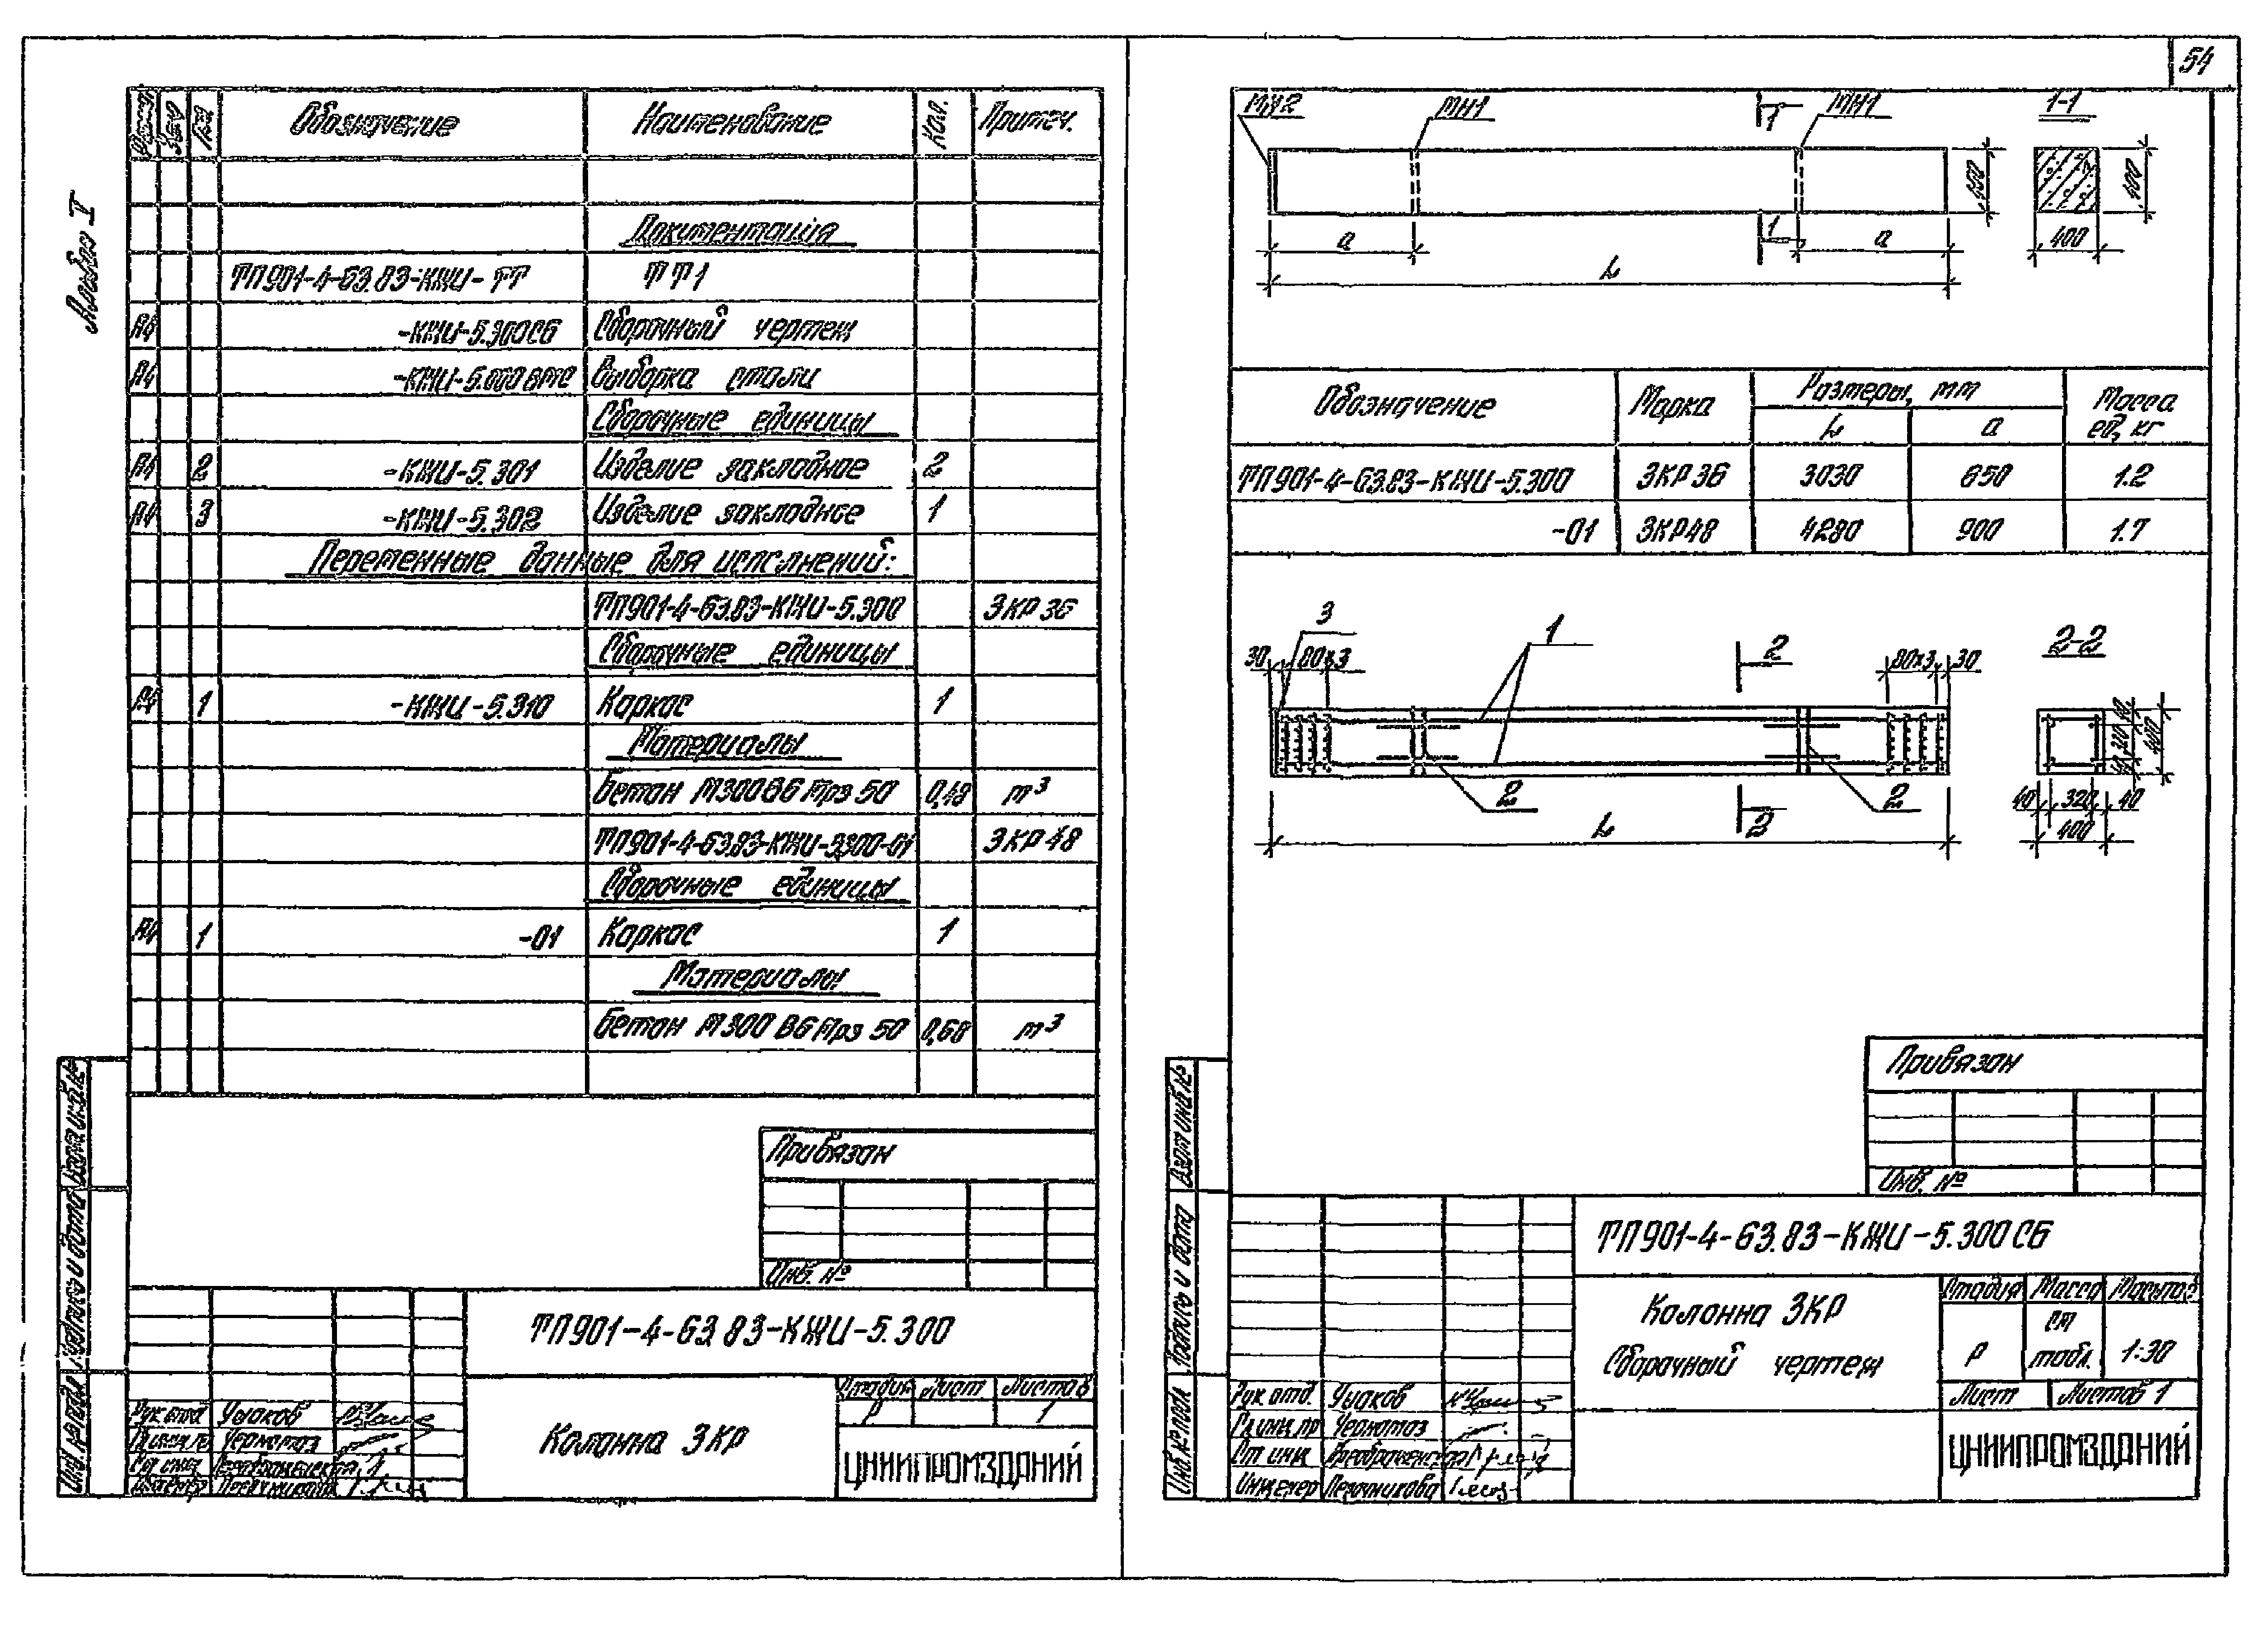 54
Альбом V
Формат Зона Поз. Обозначение Наименование Кол. Примеч.
Документация
ТП901-4-63.83-КЖИ-ТТ ТТ1
А4 -КЖИ-5.300СБ Сборочный чертеж
А4 -КЖИ-5.000ВМС Выборка стали
Сборочные единицы
А4 2 -КЖИ-5.301 Изделие закладное 2
А4 3 -КЖИ-5.302 Изделие закладное 1
Переменные данные для исполнений:
ТП901-4-63.83-КЖИ-5.300 3КР36
Сборочные единицы
А4 1 -КЖИ-5.310 Каркас 1
Материалы
Бетон М300 В6 Мрз 50 0,48 м³
ТП901-4-63.83-КЖИ-5.300-01 3КР48
Сборочные единицы
А4 1 -01 Каркас 1
Материалы
Бетон М300 В6 Мрз 50 0,68 м³
Привязан
Инв. №
ТП901-4-63.83-КЖИ-5.300
Колонна 3КР
Стадия Лист Листов
Р 1
ЦНИИПРОМЗДАНИЙ
Рук.отд Ушаков
Инв.№ подл. Подпись и дата Взам.инв.№
МН2 МН1 1 МН1 1-1
400 400
а 1 а 400
L
Обозначение Марка Размеры, мм Масса ед, кг
L а
ТП901-4-63.83-КЖИ-5.300 3КР36 3030 650 1.2
-01 3КР48 4280 900 1.7
3 1 2 2-2
30 80х3 80х3 30
40 320 40 400
2 2 40 320 40
L 2 400
Привязан
Инв. №
ТП901-4-63.83-КЖИ-5.300СБ
Колонна 3КР
Сборочный чертеж
Стадия Масса Масштаб
Р см табл. 1:30
Лист Листов 1
ЦНИИПРОМЗДАНИЙ
Рук.отд. Ушаков
Гл.инж.пр
Ст.инж.
Инженер
Инв.№ подл. Подпись и дата Взам.инв.№